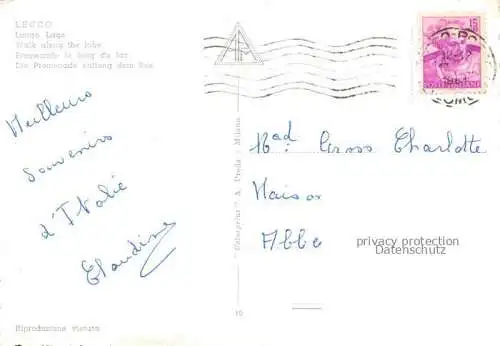 LECCO
Lungo Lago
Walk along the lake
Promenade le long du lac
Die Promenade entlang dem See
Meilleurs
souvenirs
d'Italie
Claudine
"Enterprint" A. Preda - Milano
Mad. Gross Charlotte
Maison
Abbe
privacy protection
Datenschutz
10
Riproduzione vietata